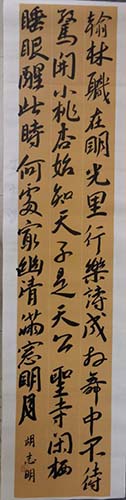 翰林職在明光里行樂詩成拜舞中不待
驚開小桃杏始知天子是天公聖寺閑栖
睡眼醒此時何處最幽清滿窓明月
胡志明